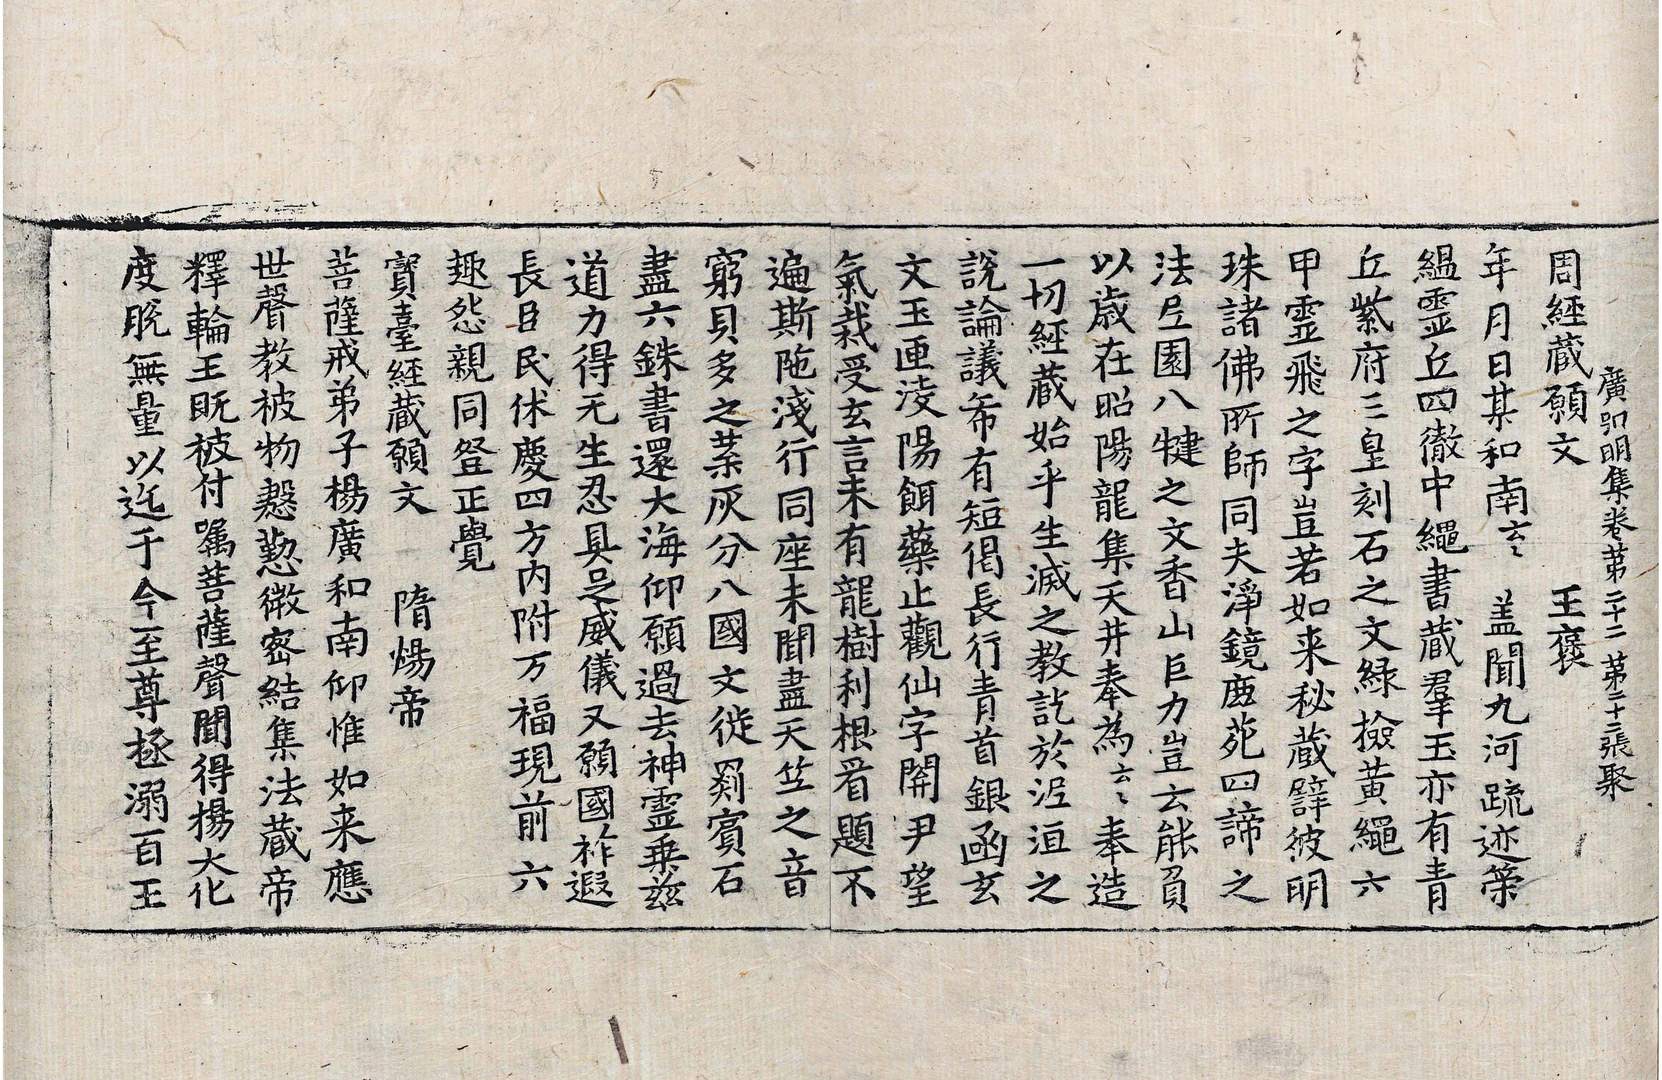 廣弘明集卷苐二十二 第二十三張聚
周經蔵願文 王襃
年月日某和南云〻 盖聞九河踈迹策
緼靈丘四徹中繩書蔵羣玉亦有青
丘紫府三皇刻石之文緑撿黄繩六
甲靈飛之字豈若如来秘蔵譬彼明
珠諸佛所師同夫淨鏡鹿苑四諦之
法尼園八犍之文香山巨力豈云能負
以歳在昭陽龍集天井奉為云〻奉造
一切經蔵始乎生滅之教訖於泥洹之
說論議希有短偈長行青首銀函玄
文玉匣淩陽餌藥止觀仙字開尹望
氣裁受玄言未有龍樹利根看題不
遍斯陁淺行同座未聞盡天竺之音
窮貝多之葉灰分八國文徙罽賔石
盡六銖書還大海仰願過去神靈乗兹
道力得无生忍具足威儀又願國祚遐
長臣民休慶四方内附万福現前六
趣怨親同登正覺
寳臺經蔵願文 隋煬帝
菩薩戒弟子楊廣和南仰惟如来應
世聲教被物慇懃微密結集法蔵帝
釋輪王既被付囑菩薩聲聞得揚大化
度脱無量以迄于今至尊拯溺百王